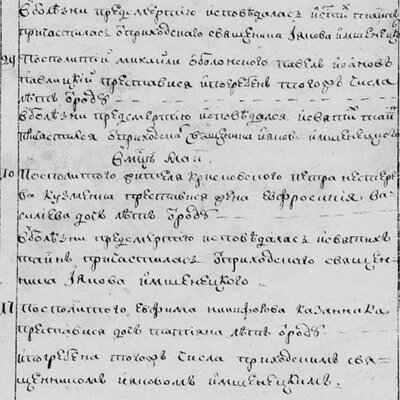 в болезни предсмертной исповедалась и святых таинъ
причастилась от приходского священника Іякова Имшенецкого
29 Посполитій Михайли Оболонского Павелъ Іоановъ
Павлицкій преставися и погребенъ того жъ числа
летъ от роду
в болезни предсмертной исповедался и святих таинъ
причастился от приходского священника Іякова Имшенецкого
в мцѣ маи
10 Посполитого жителя Петра Нестеро
ва Кузменка преставися жена Евфросинія Ва
силиева дочь летъ от роду
в болезни предсмертной исповедалась и святихъ
таинъ причастилась от приходского священ
ника Іякова Имшенецкого
11 Посполитого Евфима Никифорова Казанника
преставися дочь Татіана летъ от роду
и погребена того жъ числа приходскимъ свя
щенникомъ Іяковомъ Имшенецкимъ